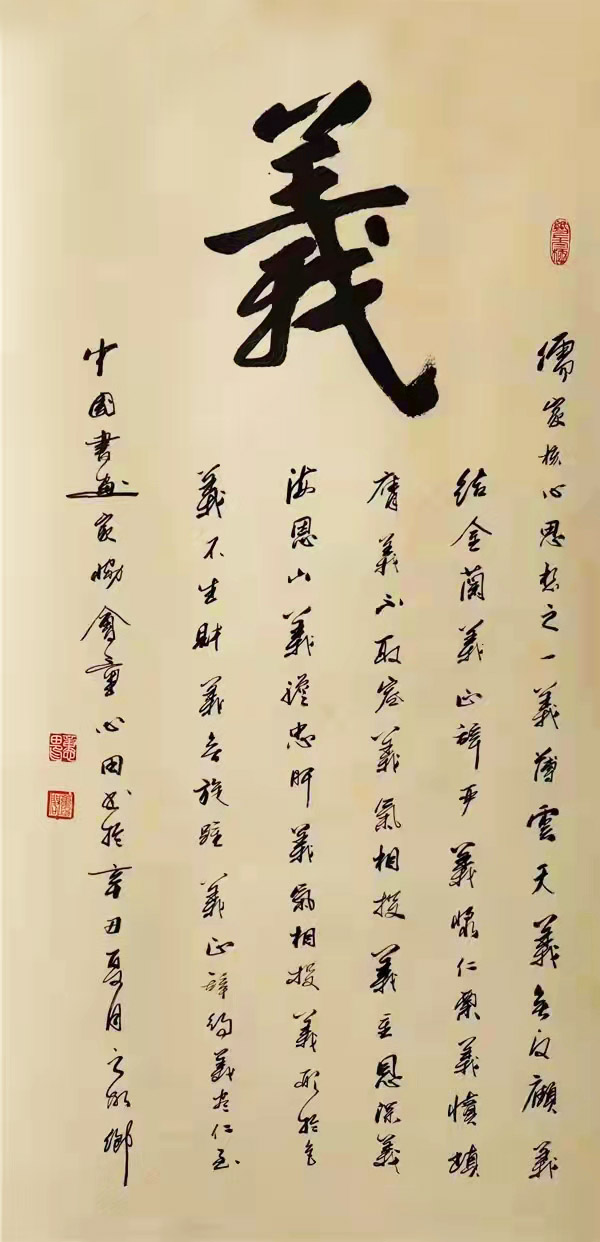 義
儒家核心思想之一義薄雲天義無反顧義
結金蘭義正辞严義漿仁粟義憤填
膺義不取容義氣相投義重恩深義
海恩山義膽忠肝義氣相投義形於色
義不生財義無旋踵義正辞約義尽仁至
中國書画家協會童心田书於辛丑夏月鄉